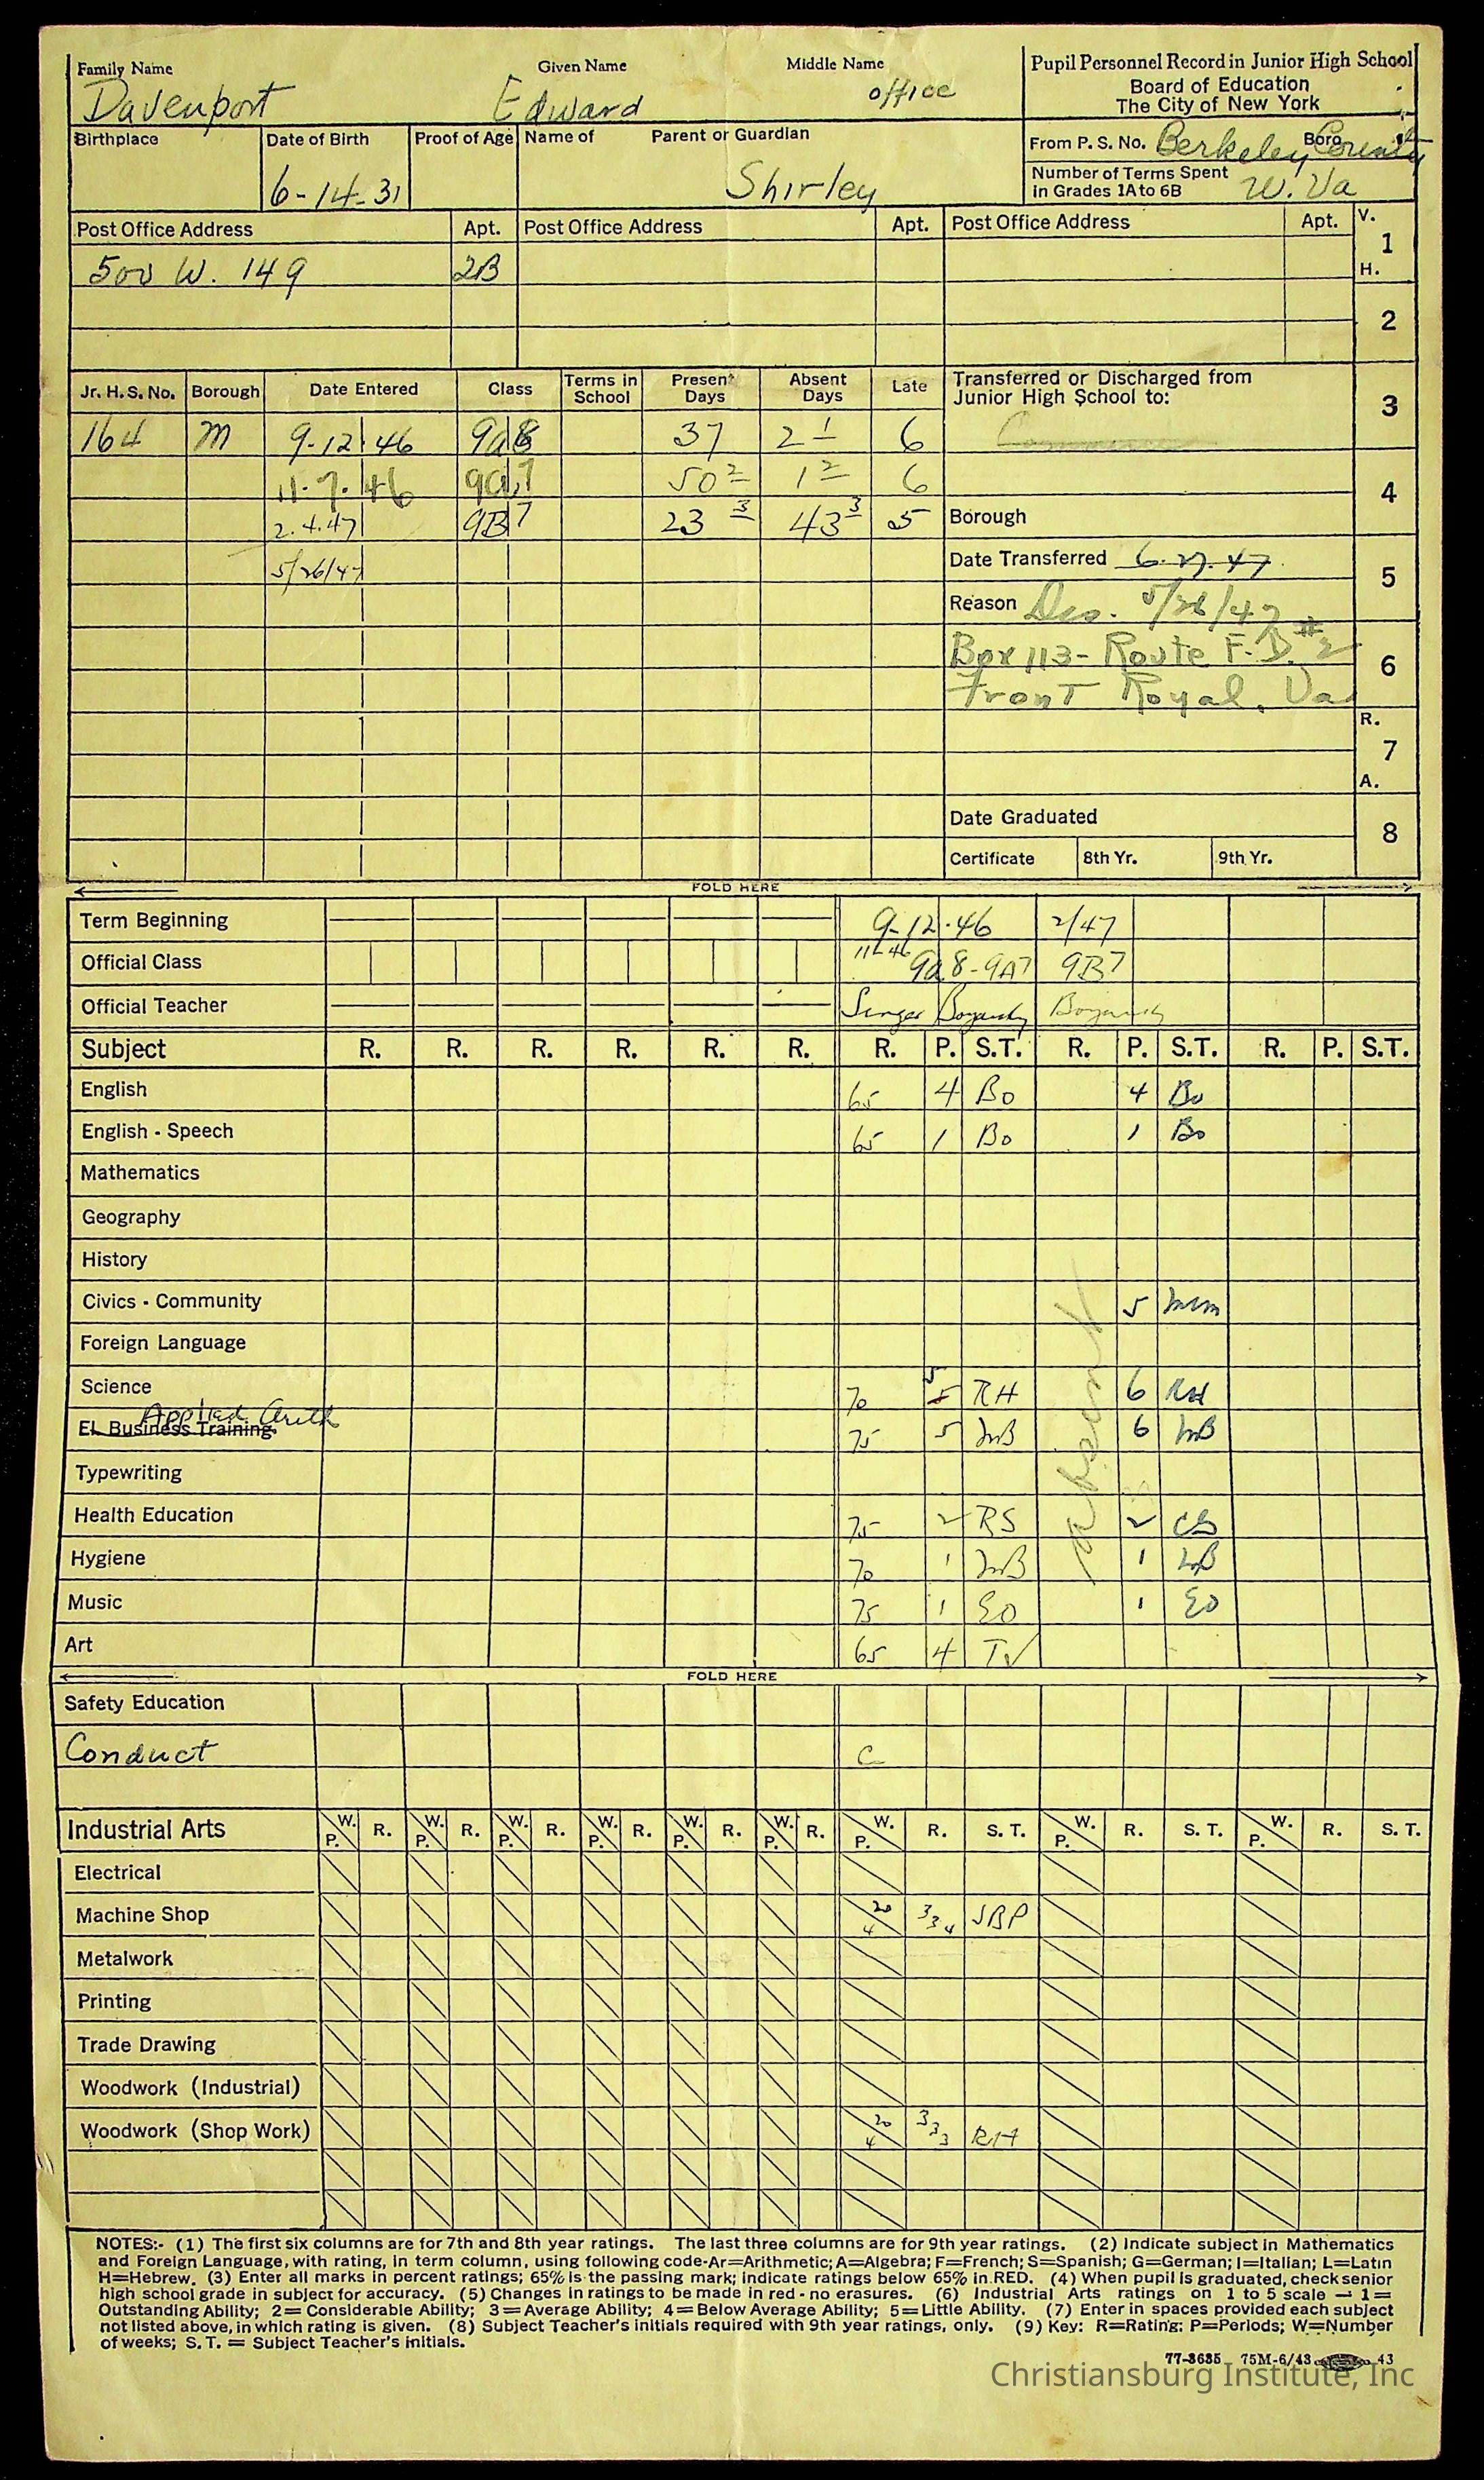 Family Name Given Name Middle Name Pupil Personnel Record in Junior High School
Davenport Edward office Board of Education
The City of New York
Birthplace Date of Birth Proof of Age Name of Parent or Guardian From P. S. No. Berkeley County Boro
6-14-31 Shirley Number of Terms Spent in Grades 1A to 6B W. Va
Post Office Address Apt. Post Office Address Apt. Post Office Address Apt. V. 1 H.
500 W. 149 2B
2
Jr. H. S. No. Borough Date Entered Class Terms in School Present Days Absent Days Late Transferred or Discharged from Junior High School to: 3
164 M 9-12-46 9a8 37 2 1 6
11-7-46 9a7 50 2 1 2 6 4
2.4.47 9B7 23 3 43 3 5 Borough
5/26/47 Date Transferred 6.27.47 5
Reason Dis. 5/26/47
Box 113- Route F.D. #2 6
Front Royal, Va
R. 7 A.
Date Graduated 8
Certificate 8th Yr. 9th Yr.
FOLD HERE
Term Beginning 9-12-46 2/47
Official Class 9a8-9A7 9B7
Official Teacher Singer
Subject R. R. R. R. R. R. R. P. S.T. R. P. S.T. R. P. S.T.
English 65 4 Bo 4 Bo
English - Speech 65 1 Bo 1 Bo
Mathematics
Geography
History
Civics - Community 5 mm
Foreign Language
absent
Science 70 5 5 RH 6 RH
Applied Arith
El. Business Training 75 5 6
Typewriting
Health Education 75 2 RS 2 CS
Hygiene 70 1 1
Music 75 1 EO 1 EO
Art 65 4 TV
FOLD HERE
Safety Education
Conduct C
Industrial Arts W. P. R. W. P. R. W. P. R. W. P. R. W. P. R. W. P. R. W. P. R. S. T. W. P. R. S. T. W. P. R. S. T.
Electrical
Machine Shop 20 4 3 3 4 JBP
Metalwork
Printing
Trade Drawing
Woodwork (Industrial)
Woodwork (Shop Work) 20 4 3 3 3 RH
NOTES:- (1) The first six columns are for 7th and 8th year ratings. The last three columns are for 9th year ratings. (2) Indicate subject in Mathematics
and Foreign Language, with rating, in term column, using following code-Ar=Arithmetic; A=Algebra; F=French; S=Spanish; G=German; I=Italian; L=Latin
H=Hebrew. (3) Enter all marks in percent ratings; 65% is the passing mark; indicate ratings below 65% in RED. (4) When pupil is graduated, check senior
high school grade in subject for accuracy. (5) Changes in ratings to be made in red - no erasures. (6) Industrial Arts ratings on 1 to 5 scale — 1=
Outstanding Ability; 2= Considerable Ability; 3=Average Ability; 4=Below Average Ability; 5=Little Ability. (7) Enter in spaces provided each subject
not listed above, in which rating is given. (8) Subject Teacher's initials required with 9th year ratings, only. (9) Key: R=Rating; P=Periods; W=Number
of weeks; S. T. = Subject Teacher's initials.
77-3635 75M-6/43 43
Christiansburg Institute, Inc